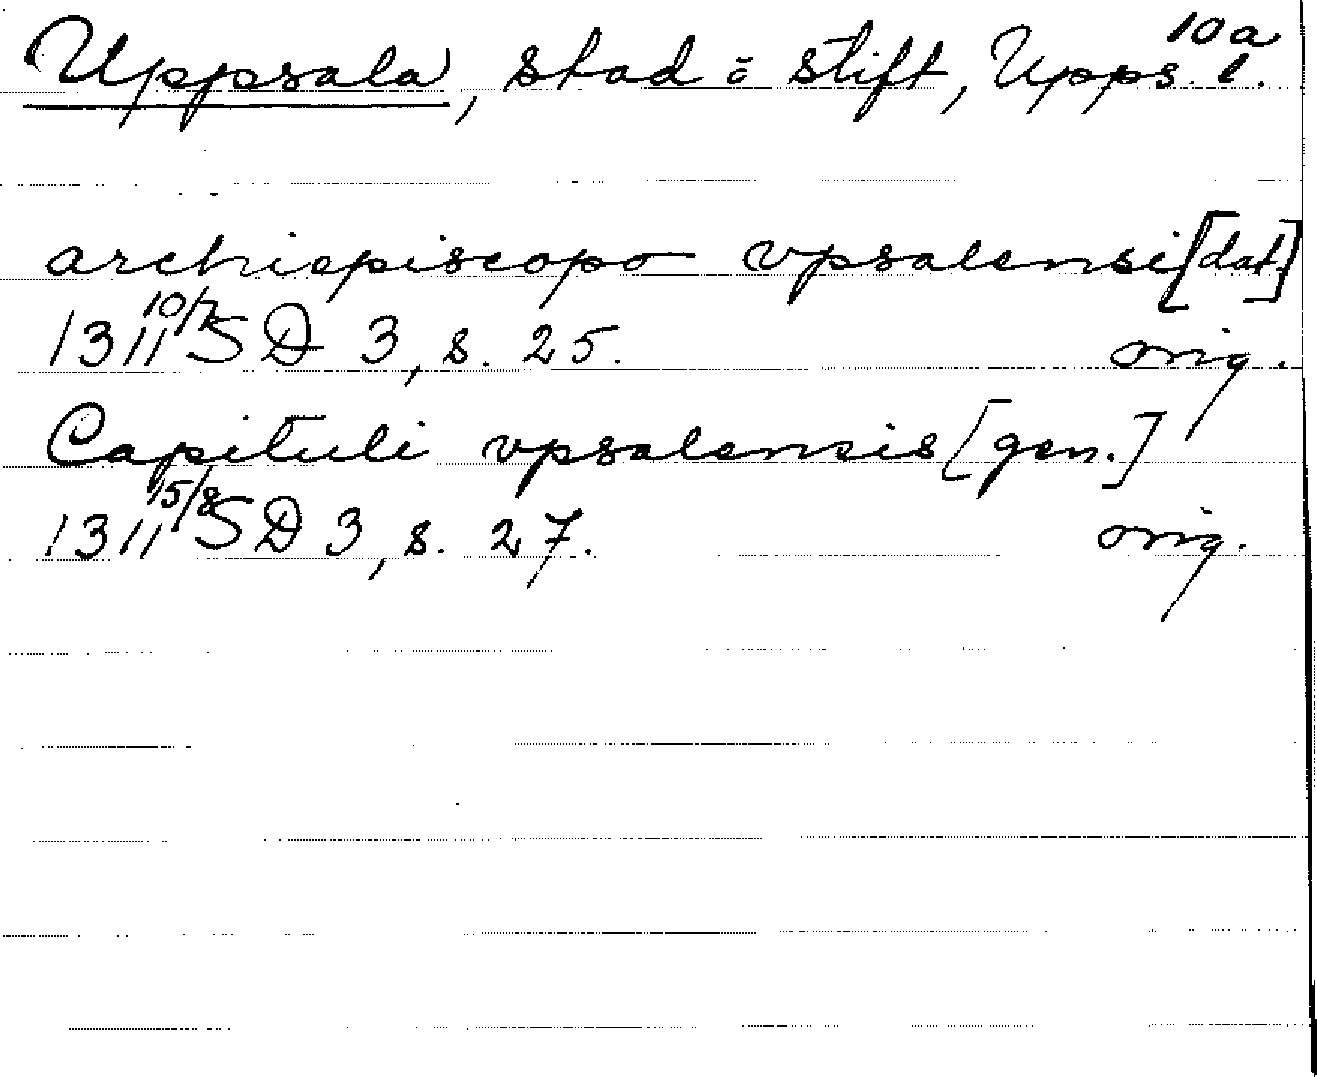 10a
Uppsala, stad o stift, Upps. l.
archiepiscopo vpsalensi [dat.]
1311 10/7 SD 3, s. 25. orig.
Capituli vpsalensis [gen.]
1311 15/8 SD 3, s. 27. orig.